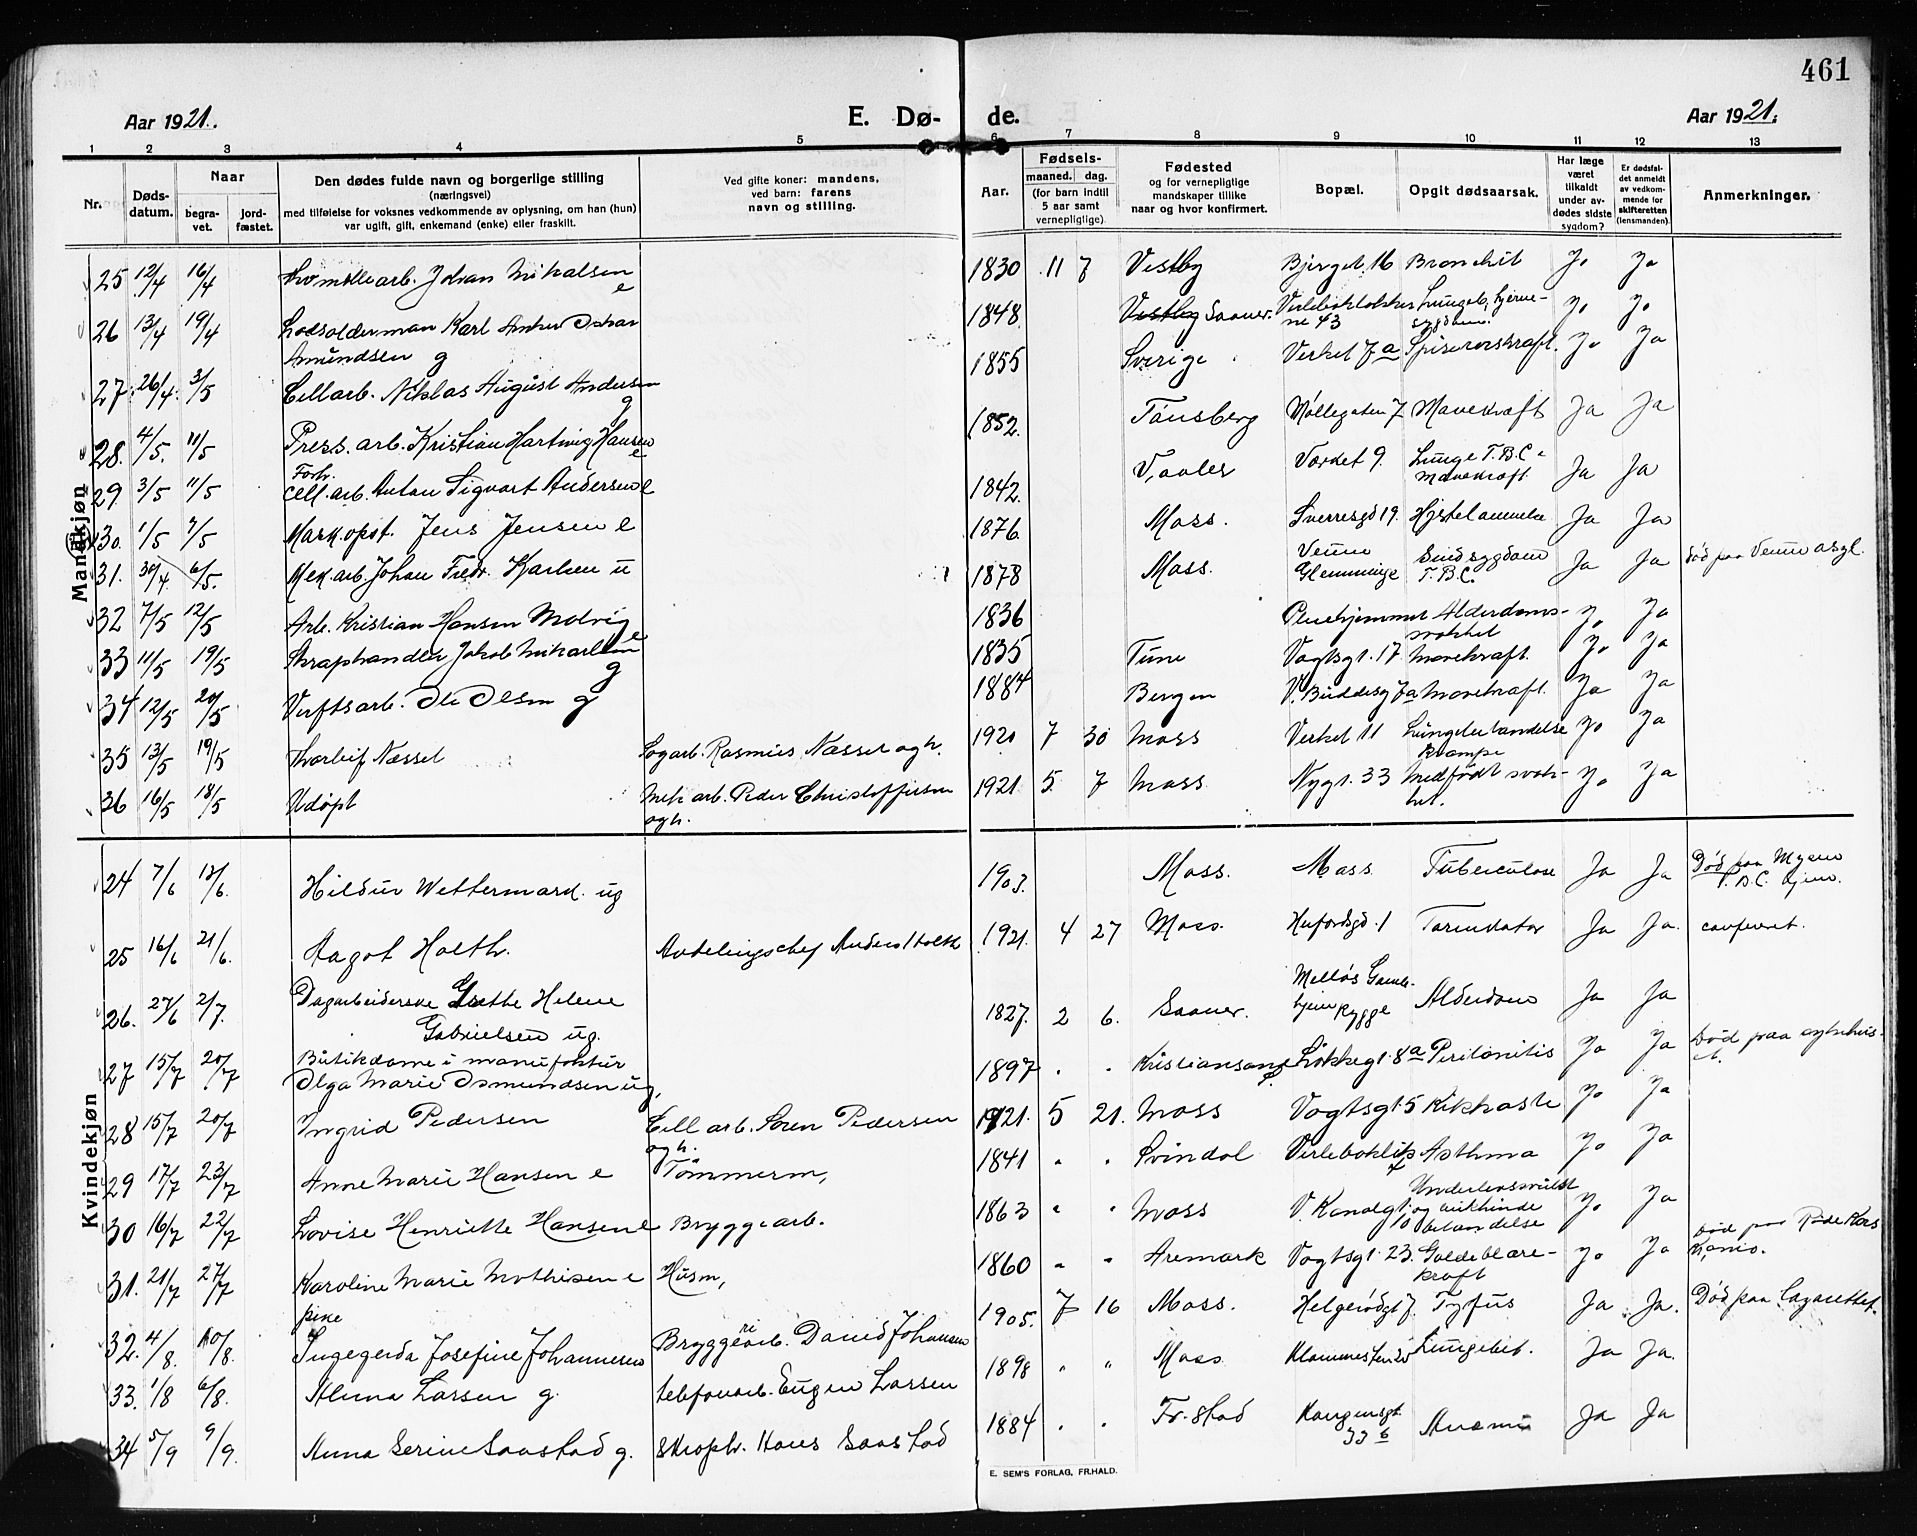 461
Aar 1921.
E. Dø-
de.
Aar 1921.
1 2 3 4 5 6 7 8 9 10 11 12 13
Nr.
Døds-
datum.
Naar
begra-
vet.
jord-
fæstet.
Den dødes fulde navn og borgerlige stilling
(næringsvei)
med tilføielse for voksnes vedkommende av oplysning, om han (hun)
var ugift, gift, enkemand (enke) eller fraskilt.
Ved gifte koner: mandens,
ved barn: farens
navn og stilling.
Aar.
Fødsels-
maaned. dag.
(for barn indtil
5 aar samt
vernepligtige).
Fødested
og for vernepligtige
mandskaper tillike
naar og hvor konfirmert.
Bopæl.
Opgit dødsaarsak.
Har læge
været
tilkaldt
under av-
dødes sidste
sygdom?
Er dødsfal-
det anmeldt
av vedkom-
mende for
skifteretten
(lensmanden).
Anmerkninger.
Mandkjøn
25 12/4 16/4 Johan Mikalsen e 1830 11 7 Vestby Bjerget 16 Bronchit Ja Ja
26 13/4 19/4 Lodsolderman Karl Anker Oskar
Amundsen g 1848 Vestby Saaner. 43 Ja Ja
27 26/4 3/5 Cellarb. Niklas August Andersen
g 1855 Sverige Verket 7a Spiserørskraft. Ja Ja
28. 4/5. 11/5 Press. arb. Kristian Hartvig Hansen
e 1852. Tønsberg Møllegaten 7 Mavekræft Ja Ja
29 3/5 11/5 Forh.
cell. arb. Anton Sigvart Andersen e 1842. Vaaler Vordet 9. Lunge T.B.C.
Mavekræft Ja Ja
30. 1/5 7/5 Jens Jensen e 1876. Moss. Sverresgd 19. Hjertelammelse Ja Ja
31. 30/4 6/5. Mek. arb. Johan Fredr. Karlsen u 1878 Moss. Veum
Glemminge Sindsygdom
T.B.C. Ja Ja død paa Veum asyl.
32 7/5 12/5 Arb. Kristian Hansen Molvig
e 1836 Pleiehjemmet Alderdoms-
svakhet Ja Ja
33 11/5 19/5 Skraphandler Jakob Mikarlsen
g 1835 Tune Vogtsgt. 17 Mavekraft. Ja Ja
34 12/5 20/5 Verftsarb. Ole Olsen g 1884 Bergen V. Buddesg 7a Mavekraft. Ja Ja
35 13/5 19/5 Thorleif Næsset Rasmus Næsset ogh. 1920 7 30 Moss Verket 11 Lungebetændelse
krampe Ja Ja
36 16/5 18/5 Udøpt Mek arb. Peder Christoffersen
ogh. 1921 5 7 Moss Nygt. 33 Medfødt svak-
het. Ja Ja
Kvindekjøn
24 7/6 13/6. Hildur Wettermark. ug 1903. Moss. Moss. Tuberculose Ja Ja Død paa
T.B.C. hjem.
25 16/6 21/6. Aagot Holth. Avdelingschef Anders Holth 1921. 4 27 Moss. 1 Ja Ja.
26. 27/6 2/7. Dagarbeiderske Grethe Helene
Gabrielsen ug. 1827. 2 6. Saaner. Melløs Gamle-
hjem Rygge Alderdom Ja Ja
27 15/7 20/7 Butikdame i manufaktur
Olga Marie Osmundsen ug, 1897 . . Kristiansand 8a Peritonitis Ja Ja Død paa sykehus-
et.
28 15/7 20/7 Ingrid Pedersen Cell arb. Søren Pedersen
ogh. 1921. 5 21. Moss Vogtsgt 5 Kikhoste Ja Ja
29 17/7 23/7 Anne Marie Hansen e Tømmerm, 1841 " " Svindal Asthma Ja Ja
30 16/7 22/7 Lovise Henriette Hansen e Bryggearb. 1863 " " Moss V. Kanalgt betændelse Ja Ja
31. 21/7 27/7 Karoline Marie Mathisen e Husm, 1860 " " Aremark Vogtsgt. 23. Galdeblære-
kraft Ja Ja Død paa Røde Kors
32. 4/8. 10/8. pike
Ingegerda Josefine Johannesen Bryggeriarb. David Johansen 1905. 7 16 Moss. Helgerødgt 7. Tyfus Ja Ja. Død paa Lazarettet.
33. 1/8 6/8. Alma Larsen g. telefonarb. Eugen Larsen 1898 " " Moss Lungebet. Ja Ja.
34 5/9 9/9. Anna Serine Saastad g. Skraph. Hans Saastad 1884 . . Fr.stad Kongensgt.
33 b Anæmi Ja Ja
E. SEM'S FORLAG, FR.HALD.